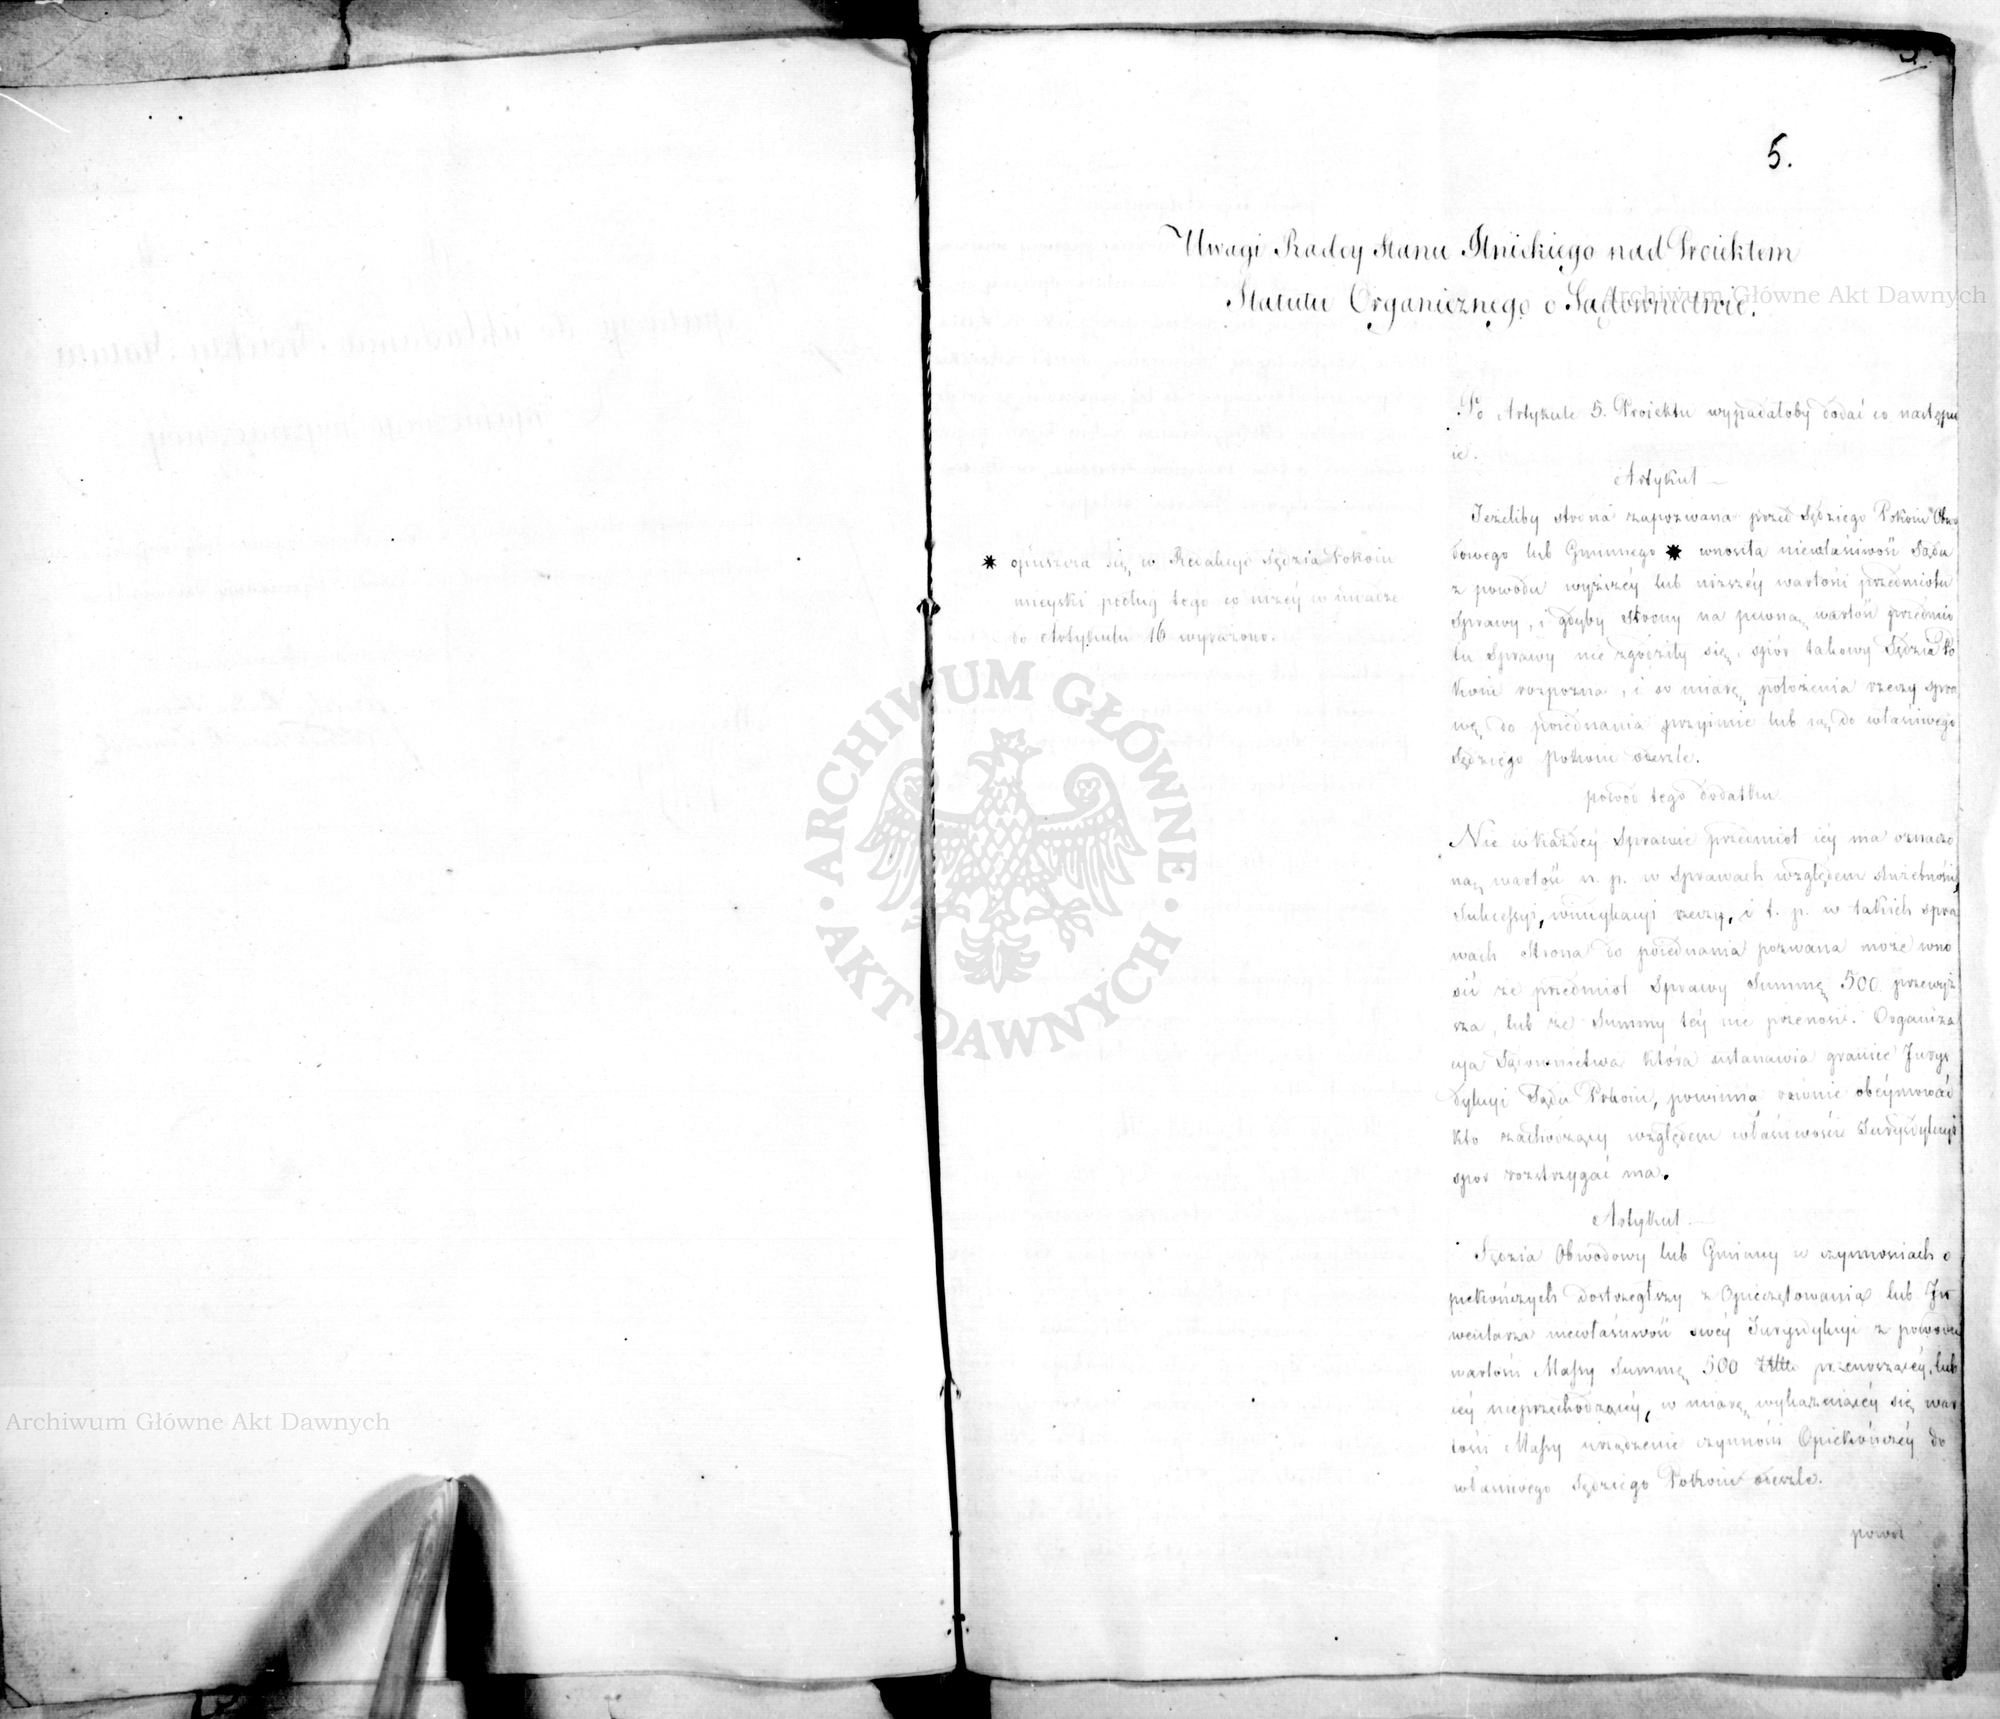 5.
5.
Uwagi Radcy Stanu Stnickiego nad Proiektem
Statutu Organicznego o Sądownictwie.
Po Artykule 5. Proiektu wypadałoby dodać co następu
ie.
Artykuł —
Jeżeliby strona zapozwana przed Sędziego Pokoiu Obwo
dowego lub Gminnego * wnosiła niewłaściwość Sądu
z powodu wyższey lub niższey wartości przedmiotu
Sprawy, i gdyby strony na pewną wartość przedmio
tu Sprawy nie zgodziły się, spór takowy Sędzia Po
koiu rozpozna, i w miarę położenia rzeczy spra
wę do poiednania przyimie lub ią do właściwego
Sędziego pokoiu odeszle.
powód tego dodatku
Nie w każdey Sprawie przedmiot iey ma oznaczo
ną wartość n. p. w Sprawach względem służebności,
Sukcessyi, windykacyi rzeczy, i t. p. w takich spra
wach Strona do poiednania pozwana może wno
sić że przedmiot Sprawy Summę 500 przewyż
sza, lub że Summy tey nie przenosi. Organiza
cya Sądownictwa która ustanawia granice Jurys
dykcyi Sądu Pokoiu, powinna równie obeymować
kto zachodzący względem właściwości Jurysdykcyi
spór rozstrzygać ma.
Artykuł —
Sędzia Obwodowy lub Gminny w czynnościach o
piekończych dostrzegłszy z Opieczętowania lub In
wentarza niewłaściwość swey Jurysdykcyi z powodu
wartości Massy Summę 500 przenoszącey, lub
iey nieprzechodzącey, w miarę wykazuiącey się war
tości Massy urządzenie czynności Opiekończey do
właściwego Sędziego Pokoiu odeszle.
powód
* opuszcza się w Redakcyi Sędzia Pokoiu
mieyski podług tego co niżey w uwadze
do Artykułu 16 wyrażono.
Archiwum Główne Akt Dawnych
Archiwum Główne Akt Dawnych
ARCHIWUM GŁÓWNE
AKT DAWNYCH